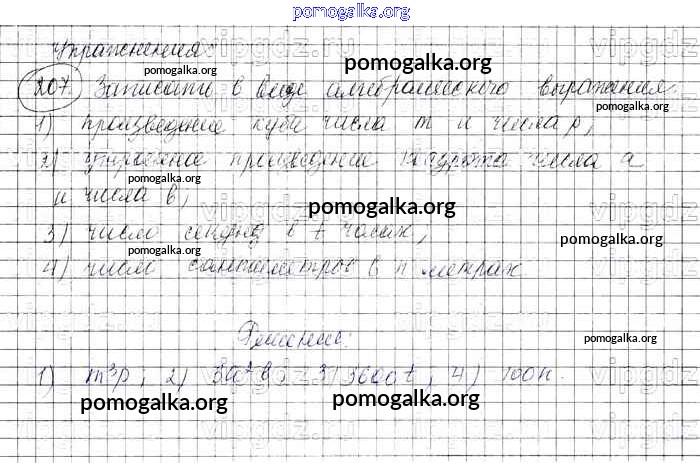 pomogalka.org
Упражнения
pomogalka.org
pomogalka.org
207 Записать в виде алгебраического выражения:
pomogalka.org
pomogalka.org
1) произведение куба числа m и числа p;
2) утроенное произведение квадрата числа a
pomogalka.org
и числа b;
pomogalka.org
3) число секунд в t часах;
pomogalka.org
pomogalka.org
4) число сантиметров в n метрах
Решение:
pomogalka.org
1) m³p; 2) 3a²b; 3) 3600t; 4) 100n.
pomogalka.org
pomogalka.org